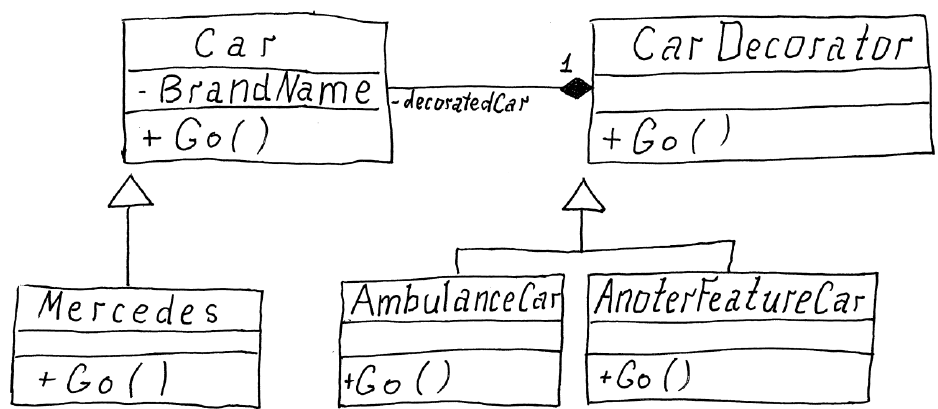 Car
- BrandName
+ Go()
1
-decoratedCar
CarDecorator
+ Go()
Mercedes
+ Go()
AmbulanceCar
+Go()
AnoterFeatureCar
+Go()